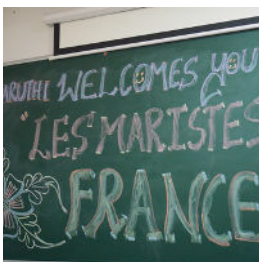 ARUTHI WELCOMES YOU
LES MARISTES
FRANCE